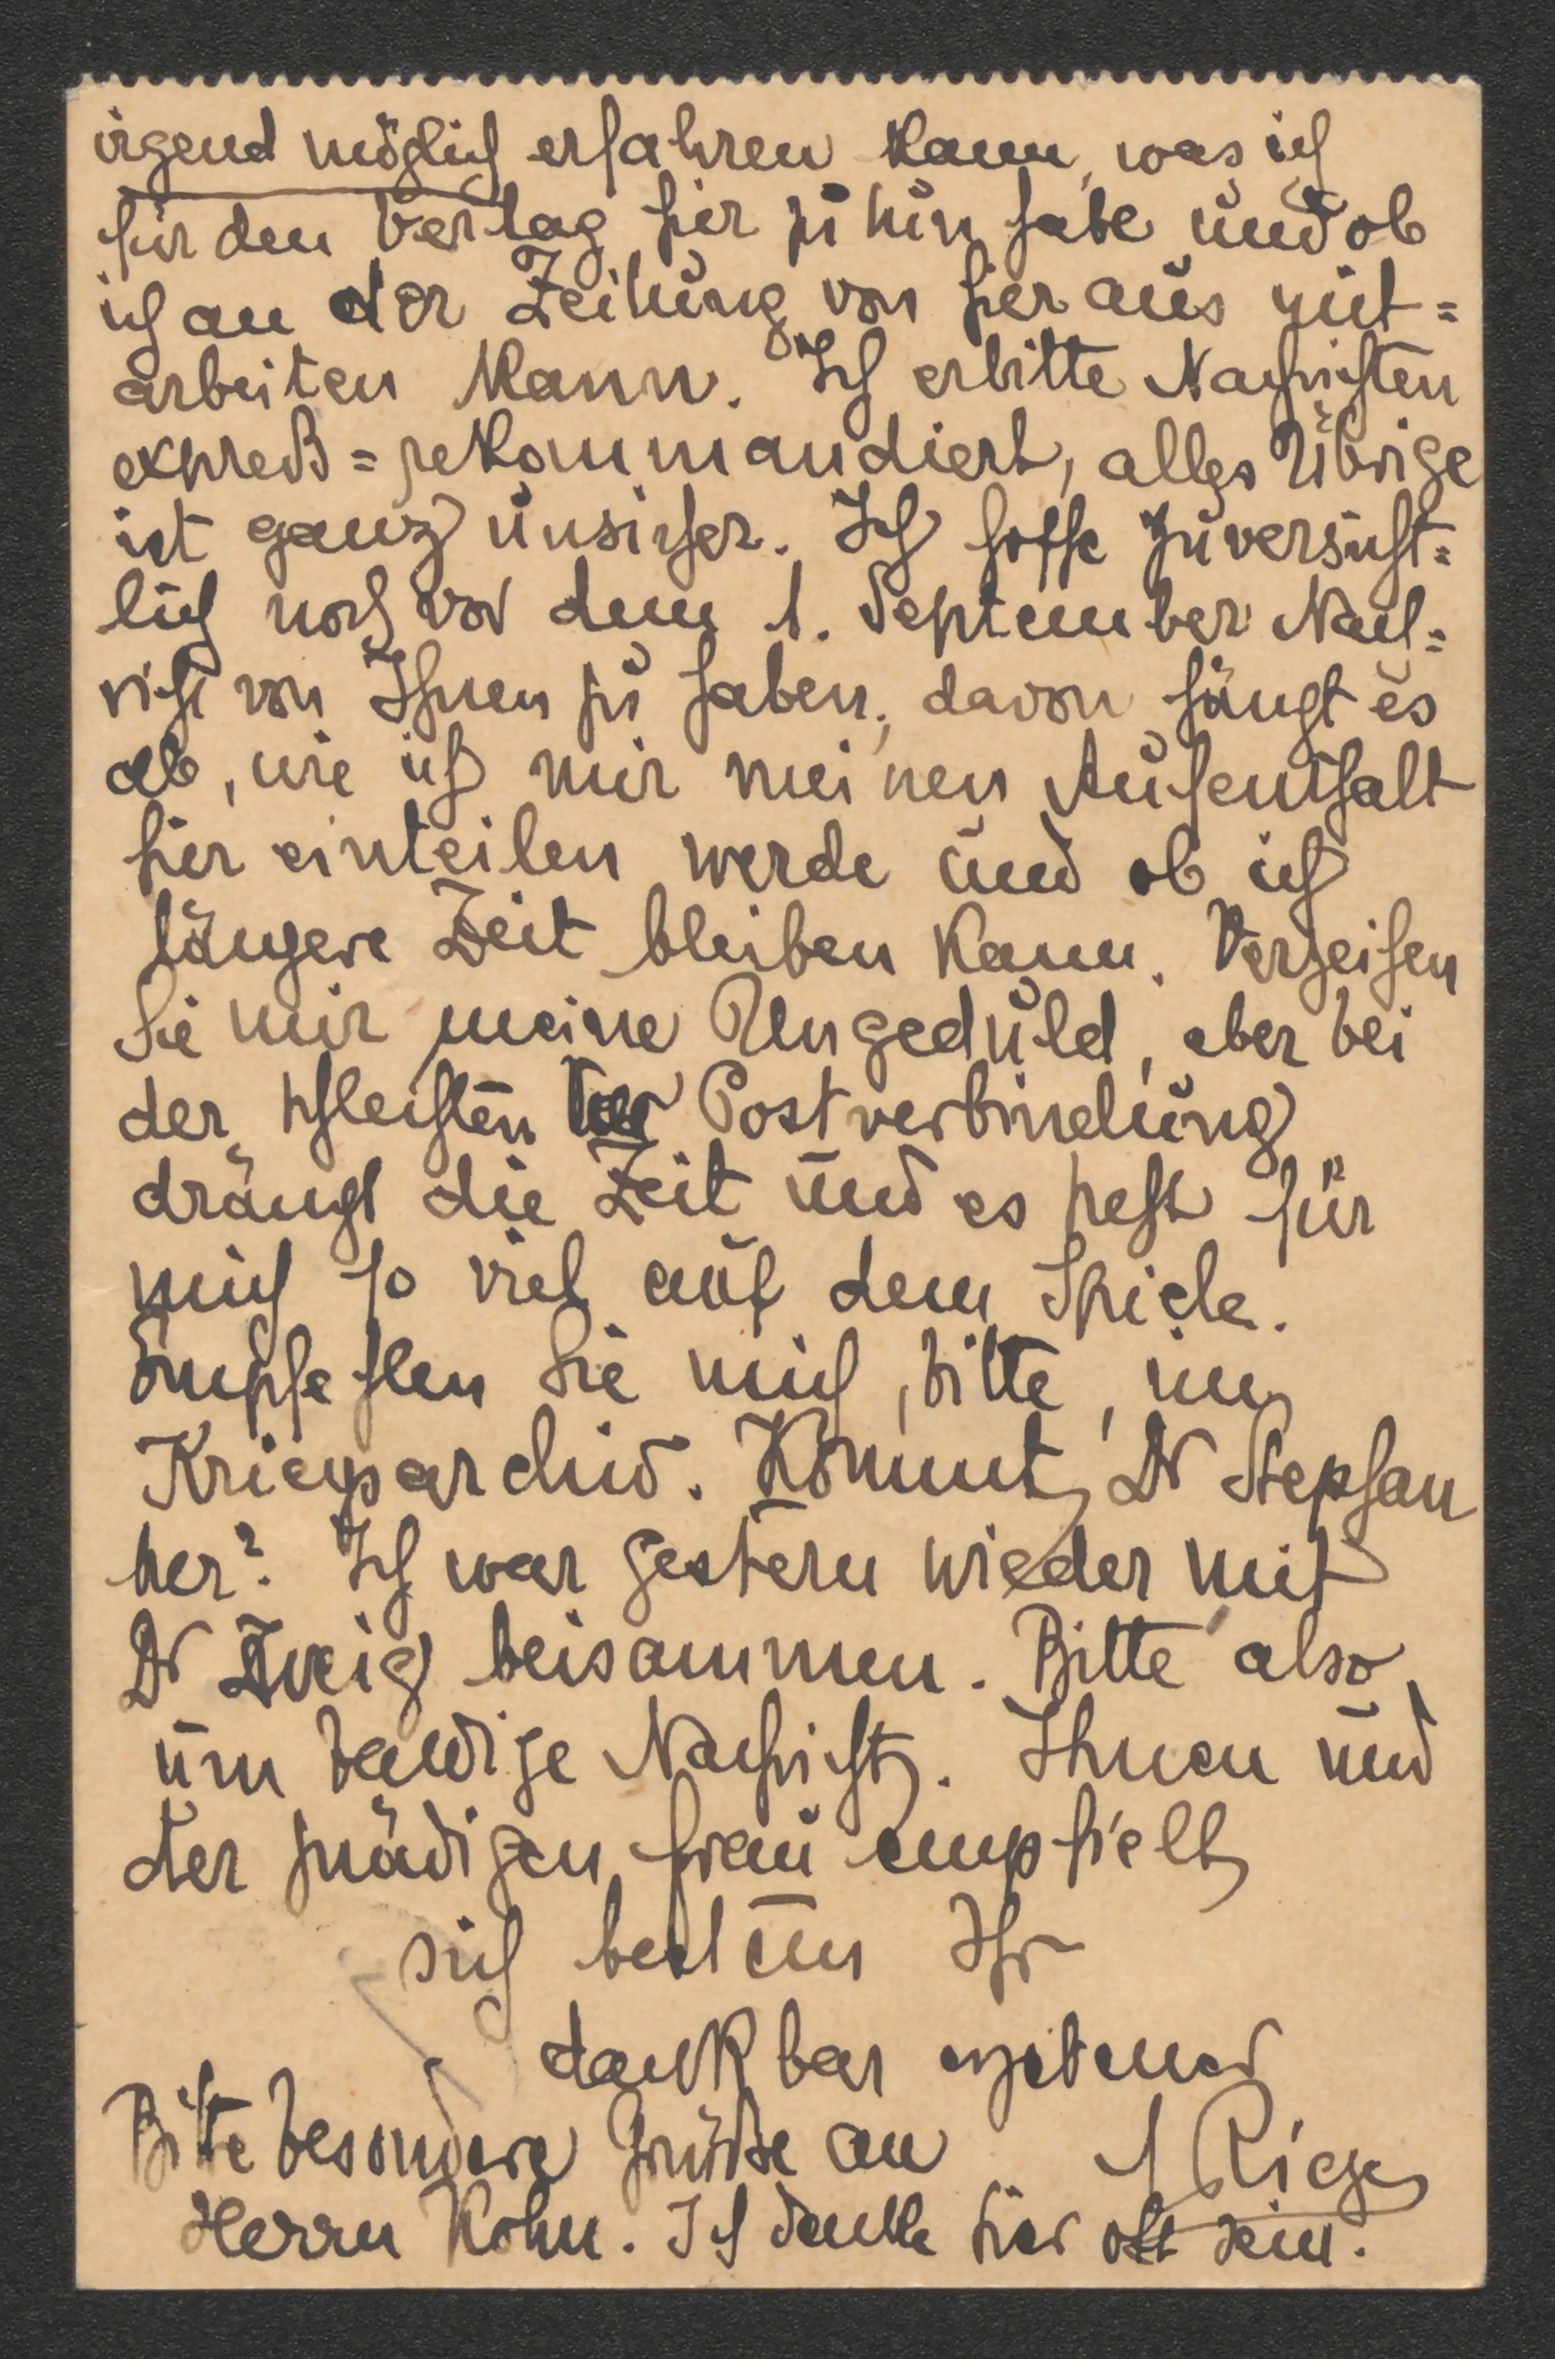 irgend möglich erfahren kann, was ich
für den Verlag hier zu tun habe und ob
ich an der Zeitung von hier aus mit=
arbeiten kann. Ich erbitte Nachrichten
expreß=rekommandiert, alles Übrige
ist ganz unsicher. Ich hoffe zuversicht=
lich noch vor dem 1. September Nach=
richt von Ihnen zu haben, davon hängt es
ab, wie ich mir meinen Aufenthalt
hier einteilen werde und ob ich
längere Zeit bleiben kann. Verzeihen
Sie mir meine Ungeduld, aber bei
der schlechten Postverbindung
drängt die Zeit und es steht für
mich so viel auf dem Spiele.
Empfehlen Sie mich, bitte, im
Kriegsarchiv. Kommt Dr Stephan
her? Ich war gestern wieder mit
Dr Zweig beisammen. Bitte also
um baldige Nachricht. Ihnen und
der gnädigen Frau empfielt
sich bestens Ihr
dankbar ergebener
Bitte besondere Grüße an
Herrn Kohn. Ich denke hier oft sein.